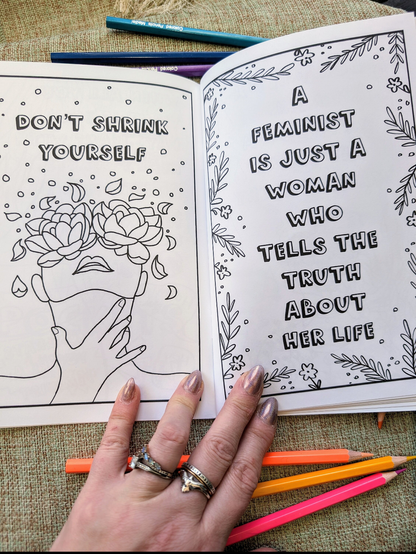 DON'T SHRINK
YOURSELF
A
FEMINIST
IS JUST A
WOMAN
WHO
TELLS THE
TRUTH
ABOUT
HER LIFE